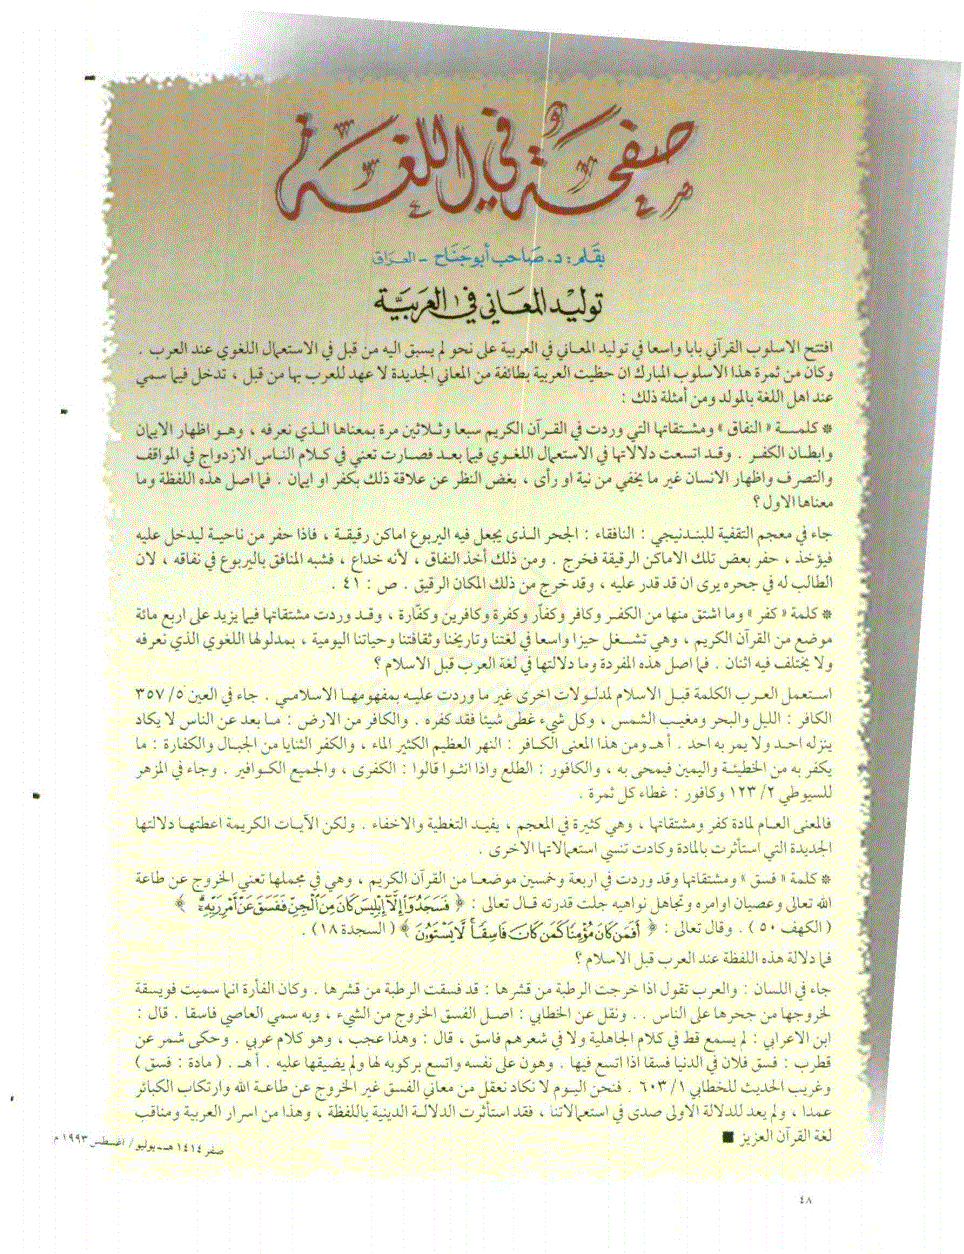 صفحة في اللغة
بقلم: د. صاحب أبو جناح - العراق
توليد المعاني في العربية
افتتح الاسلوب القرآني بابا واسعا في توليد المعاني في العربية على نحو لم يسبق اليه من قبل في الاستعمال اللغوي عند العرب .
وكان من ثمرة هذا الاسلوب المبارك ان حظيت العربية بطائفة من المعاني الجديدة لا عهد للعرب بها من قبل ، تدخل فيما سمي
عند اهل اللغة بالمولد ومن أمثلة ذلك :
* كلمة « النفاق » ومشتقاتها التي وردت في القرآن الكريم سبعا وثلاثين مرة بمعناها الذي نعرفه ، وهو اظهار الايمان
وابطان الكفر . وقد اتسعت دلالاتها في الاستعمال اللغوي فيما بعد فصارت تعني في كلام الناس الازدواج في المواقف
والتصرف واظهار الانسان غير ما يخفي من نية او رأى ، بغض النظر عن علاقة ذلك بكفر او ايمان . فما اصل هذه اللفظة وما
معناها الاول ؟
جاء في معجم التقفية للبندنيجي : النافقاء : الجحر الذى يجعل فيه اليربوع اماكن رقيقة ، فاذا حفر من ناحية ليدخل عليه
فيؤخذ ، حفر بعض تلك الاماكن الرقيقة فخرج . ومن ذلك أخذ النفاق ، لأنه خداع ، فشبه المنافق باليربوع في نفاقه ، لان
الطالب له في جحره يرى ان قد قدر عليه ، وقد خرج من ذلك المكان الرقيق . ص : ٤١ .
* كلمة « كفر » وما اشتق منها من الكفر وكافر وكفار وكفرة وكافرين وكفّارة ، وقد وردت مشتقاتها فيما يزيد على اربع مائة
موضع من القرآن الكريم ، وهي تشغل حيزا واسعا في لغتنا وتاريخنا وثقافتنا وحياتنا اليومية ، بمدلولها اللغوي الذي نعرفه
ولا يختلف فيه اثنان . فما اصل هذه المفردة وما دلالتها في لغة العرب قبل الاسلام ؟
استعمل العرب الكلمة قبل الاسلام لمدلولات اخرى غير ما وردت عليه بمفهومها الاسلامي . جاء في العين ٥/ ٣٥٧
الكافر : الليل والبحر ومغيب الشمس ، وكل شيء غطى شيئا فقد كفره . والكافر من الارض : ما بعد عن الناس لا يكاد
ينزله احد ولا يمر به احد . أهـ ومن هذا المعنى الكافر : النهر العظيم الكثير الماء ، والكفر الثنايا من الجبال والكفارة : ما
يكفر به من الخطيئة واليمين فيمحى به ، والكافور : الطلع واذا انثوا قالوا : الكفرى ، والجميع الكوافير . وجاء في المزهر
للسيوطي ٢/ ١٢٣ وكافور : غطاء كل ثمرة .
فالمعنى العام لمادة كفر ومشتقاتها ، وهي كثيرة في المعجم ، يفيد التغطية والاخفاء . ولكن الآيات الكريمة اعطتها دلالتها
الجديدة التي استأثرت بالمادة وكادت تنسي استعمالاتها الاخرى .
* كلمة « فسق » ومشتقاتها وقد وردت في اربعة وخمسين موضعا من القرآن الكريم ، وهي في مجملها تعني الخروج عن طاعة
الله تعالى وعصيان اوامره وتجاهل نواهيه جلت قدرته قال تعالى : ﴿ فَسَجَدُوٓا۟ إِلَّآ إِبْلِيسَ كَانَ مِنَ ٱلْجِنِّ فَفَسَقَ عَنْ أَمْرِ رَبِّهِۦٓ ﴾
( الكهف ٥٠ ) . وقال تعالى : ﴿ أَفَمَن كَانَ مُؤْمِنًا كَمَن كَانَ فَاسِقًا لَّا يَسْتَوُۥنَ ﴾ ( السجدة ١٨ ) .
فما دلالة هذه اللفظة عند العرب قبل الاسلام ؟
جاء في اللسان : والعرب تقول اذا خرجت الرطبة من قشرها : قد فسقت الرطبة من قشرها . وكان الفأرة انما سميت فويسقة
لخروجها من جحرها على الناس . . ونقل عن الخطابي : اصل الفسق الخروج من الشيء ، وبه سمي العاصي فاسقا . قال :
ابن الاعرابي : لم يسمع قط في كلام الجاهلية ولا في شعرهم فاسق ، قال : وهذا عجب ، وهو كلام عربي . وحكى شمر عن
قطرب : فسق فلان في الدنيا فسقا اذا اتسع فيها . وهون على نفسه واتسع بركوبه لها ولم يضيقها عليه . أهـ . ( مادة : فسق )
وغريب الحديث للخطابي ١/ ٦٠٣ . فنحن اليوم لا نكاد نعقل من معاني الفسق غير الخروج عن طاعة الله وارتكاب الكبائر
عمدا ، ولم يعد للدلالة الاولى صدى في استعمالاتنا ، فقد استأثرت الدلالة الدينية باللفظة ، وهذا من اسرار العربية ومناقب
لغة القرآن العزيز ■
صفر ١٤١٤ هـ - يوليو / اغسطس ١٩٩٣ م
٤٨